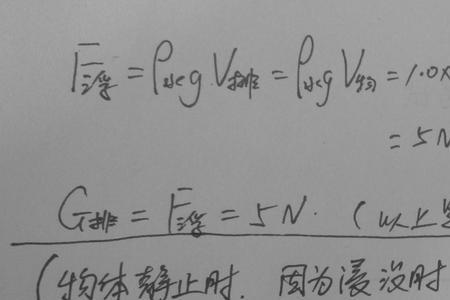 F浮 = ρ水g V排 = ρ水g V物 = 1.0×
= 5N
G排 = F浮 = 5N. (以上
(物体静止时. 因为浸没时